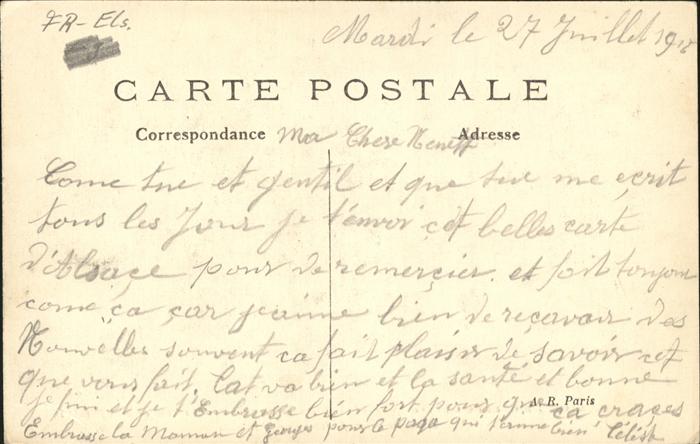 FR- Els.
Mardi le 27 Juillet 191
CARTE POSTALE
Correspondance Ma Chere Adresse
Come tue et gentil et que tue me ecrit
tous les Jour je t'envoi cet belles carte
d'Alsaçe pour de remerçier et fait toujour
come ça çar jeaime bien de reçavoir des
Nouvelles souvent ca fait plaisir de savoir cet
que vous fait. Cat va bien et la santé et bonne
A.R. Paris
je fini et je t'Embrasse bien fort pour
Embrasse la Maman et Georges pour le papa qui t'aime bien